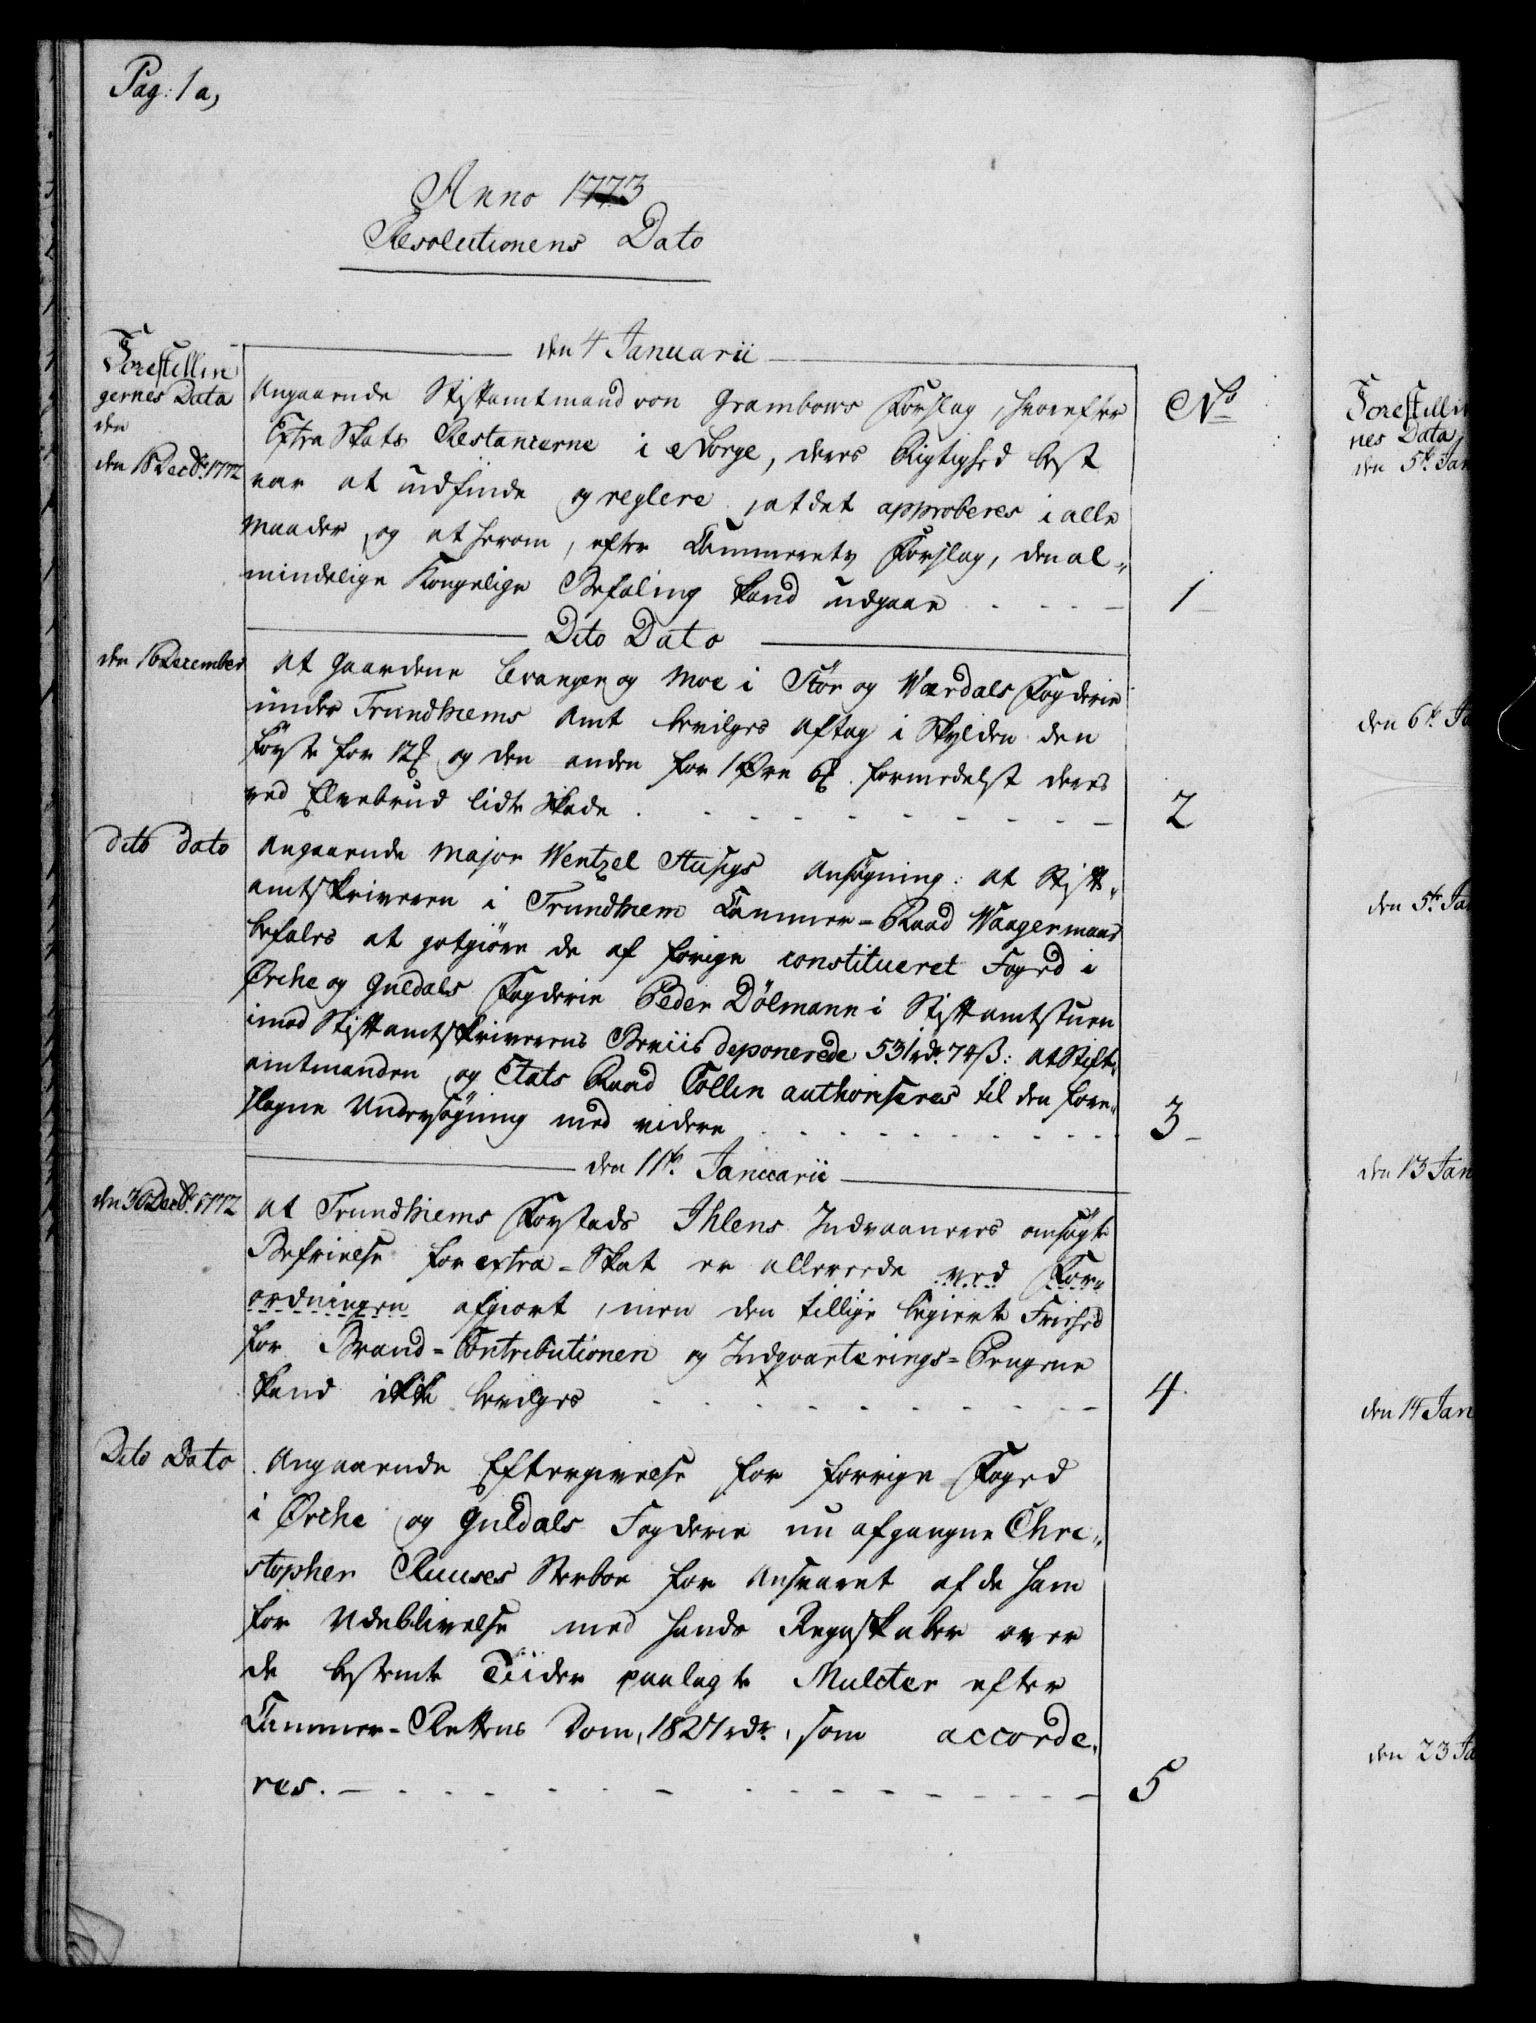 Pag: 1 a,
Anno 1773
Resolutionens Dato
Forestillin
gernes Data
den
den 4 Januarii
No
Angaaende Stiftamtmand von Grambows Forslag, hvorefter
Extra Skats Restancerne i Norge, deres Rigtighed best
den 18 Decbr: 1772
var at udfinde og reglere, at det approberes i alle
Maader, og at herom, efter Cammerets Forslag, den al-
mindelige Kongelige Befaling kand udgaae
1
Dito Dato
den 16 December
At Gaardene Levanger og Moe i Stør og Værdals Fogderie
under Trundhiems Amt bevilges Aftag i Skylden den
første for 12 og den anden for 1 Øre 6 formedelst deres
ved Elvebrud lidte Skade
2
dito dato
Angaaende Major Wentzel Ansøgning: at Stift-
amtskriveren i Trundhiem Cammer-Raad Waagermand
befales at godgiøre de af forige constitueret Foged i
Orche og Guldals Fogderie Peder Dölmann i Stiftamtstuen
imod Stiftamtskriverens Beviis deponerede 531 rdr. 74 ß: at Stift-
amtmanden og Etats Raad Collin authoriseres til den fore-
slagne Undersøgning med videre
3
den 11te Januarii
den 30 Decbr: 1772
At Trundhiems Forstads Ihlens Indvaaneres ansøgte
Befrielse for extra-Skat er allereede ved For-
ordningen afgiort, men den tillige begierte Friehed
for Brand-Contributionen og Indqvarterings-Pengene
kand ikke bevilges
4
Dito Dato
Angaaende Eftergivelse for forrige Foged
i Orche og Guldals Fogderie nu afgangne Chri-
stopher Ruuses Sterboe for Ansvaret af de ham
for Udeblivelse med hands Regnskaber over
de bestemte Tiider paalagte Mulcter efter
Cammer-Rettens Dom, 1827 rdr, som accorde-
res.
5
Forestillin
nes Data
den 5te Jan
den 6te Ja
den 5te Jan
den 13 Jan
den 14 Jan
den 23 Ja